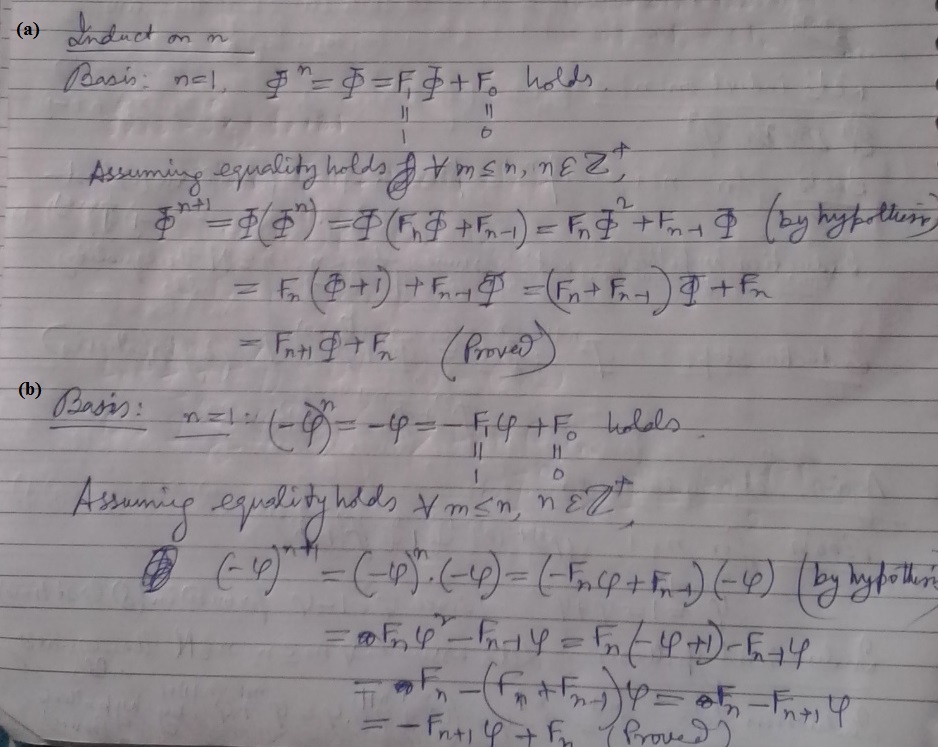 (a) Induct on n
Basis: n=1, Φⁿ = Φ = F₁Φ + F₀ holds.
|| ||
1 0
Assuming equality holds ∀ m ≤ n, n ∈ Z⁺,
Φⁿ⁺¹ = Φ(Φⁿ) = Φ(FₙΦ + Fₙ₋₁) = FₙΦ² + Fₙ₋₁Φ (by hypothesis)
= Fₙ(Φ+1) + Fₙ₋₁Φ = (Fₙ + Fₙ₋₁)Φ + Fₙ
= Fₙ₊₁Φ + Fₙ (Proved)
(b) Basis: n=1: (-φ)ⁿ = -φ = -F₁φ + F₀ holds.
|| ||
1 0
Assuming equality holds ∀ m ≤ n, n ∈ Z⁺,
(-φ)ⁿ⁺¹ = (-φ)ⁿ.(-φ) = (-Fₙφ + Fₙ₋₁)(-φ) (by hypothesis
= Fₙφ² - Fₙ₋₁φ = Fₙ(-φ+1) - Fₙ₋₁φ
= Fₙ - (Fₙ + Fₙ₋₁)φ = Fₙ - Fₙ₊₁φ
= -Fₙ₊₁φ + Fₙ (Proved)